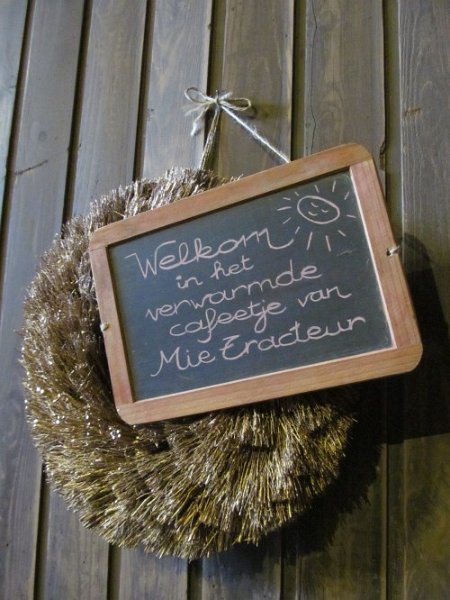 Welkom
in het
verwarmde
cafeetje van
Mie Tracteur